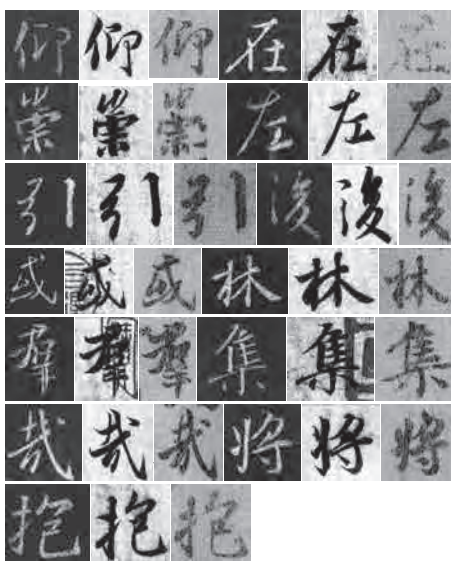 仰仰仰在在在
崇崇崇左左左
引引引後後後
或或或林林林
羣羣羣集集集
哉哉哉将将将
抱抱抱